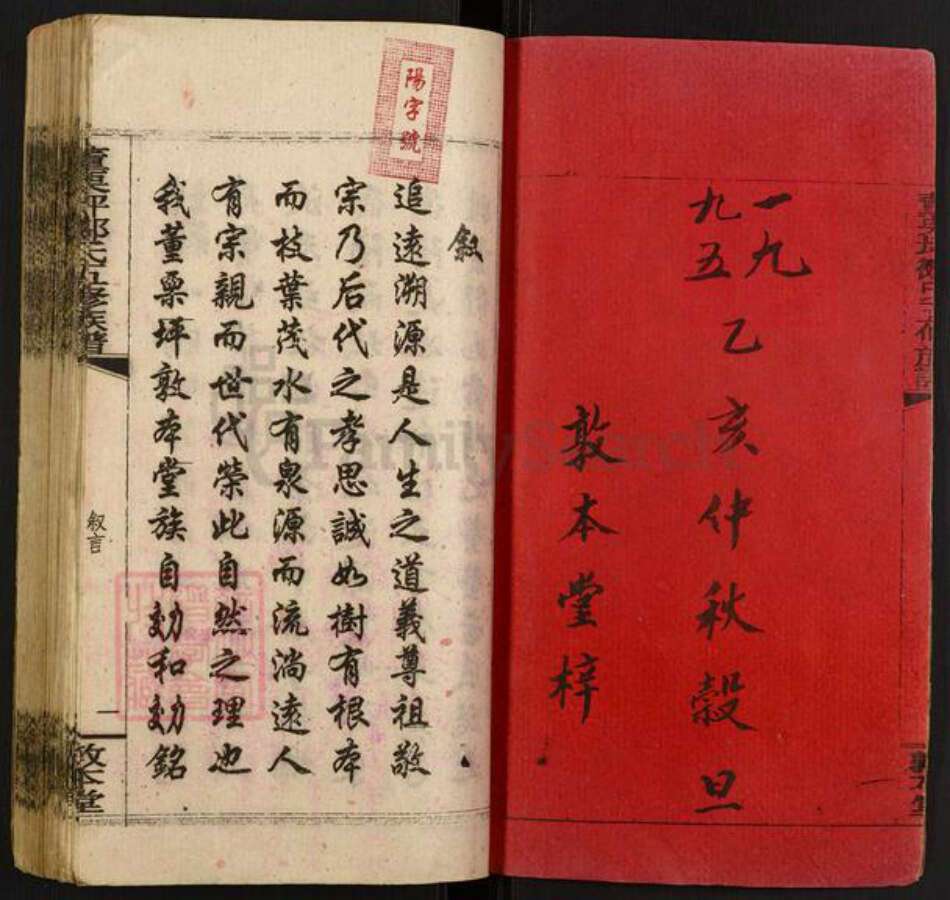 一九
九五
乙亥仲秋穀旦
敦本堂梓
陽字號
敘
追遠溯源是人生之道義尊祖敬
宗乃后代之孝思誠如樹有根本
而枝葉茂水有泉源而流淌遠人
有宗親而世代榮此自然之理也
我董粟坪敦本堂族自効和効銘
氏五修族譜
敘言
一
敦本堂
FamilySearch